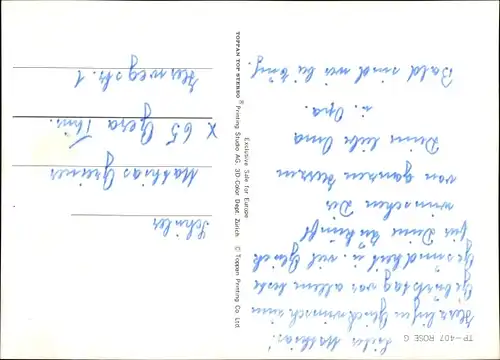 TP-407 ROSE G
Lieber Mathias!
Herzlichen Glückwunsch zum
Geburtstag vor allem beste
Gesundheit u. viel Glück
für Deine Zukunft
wünschen Dir
von ganzen Herzen
Deine liebe Oma
u. Opa.
Bald sind wir bei
Exclusive Sale for Europe
TOPPAN TOP STEREO ® Printing Studio AG, 3D Color Dept. Zürich © Toppan Printing Co. Ltd.
Schüler
Mathias Greiner
X 65 Gera Thür.
Herwegstr. 1